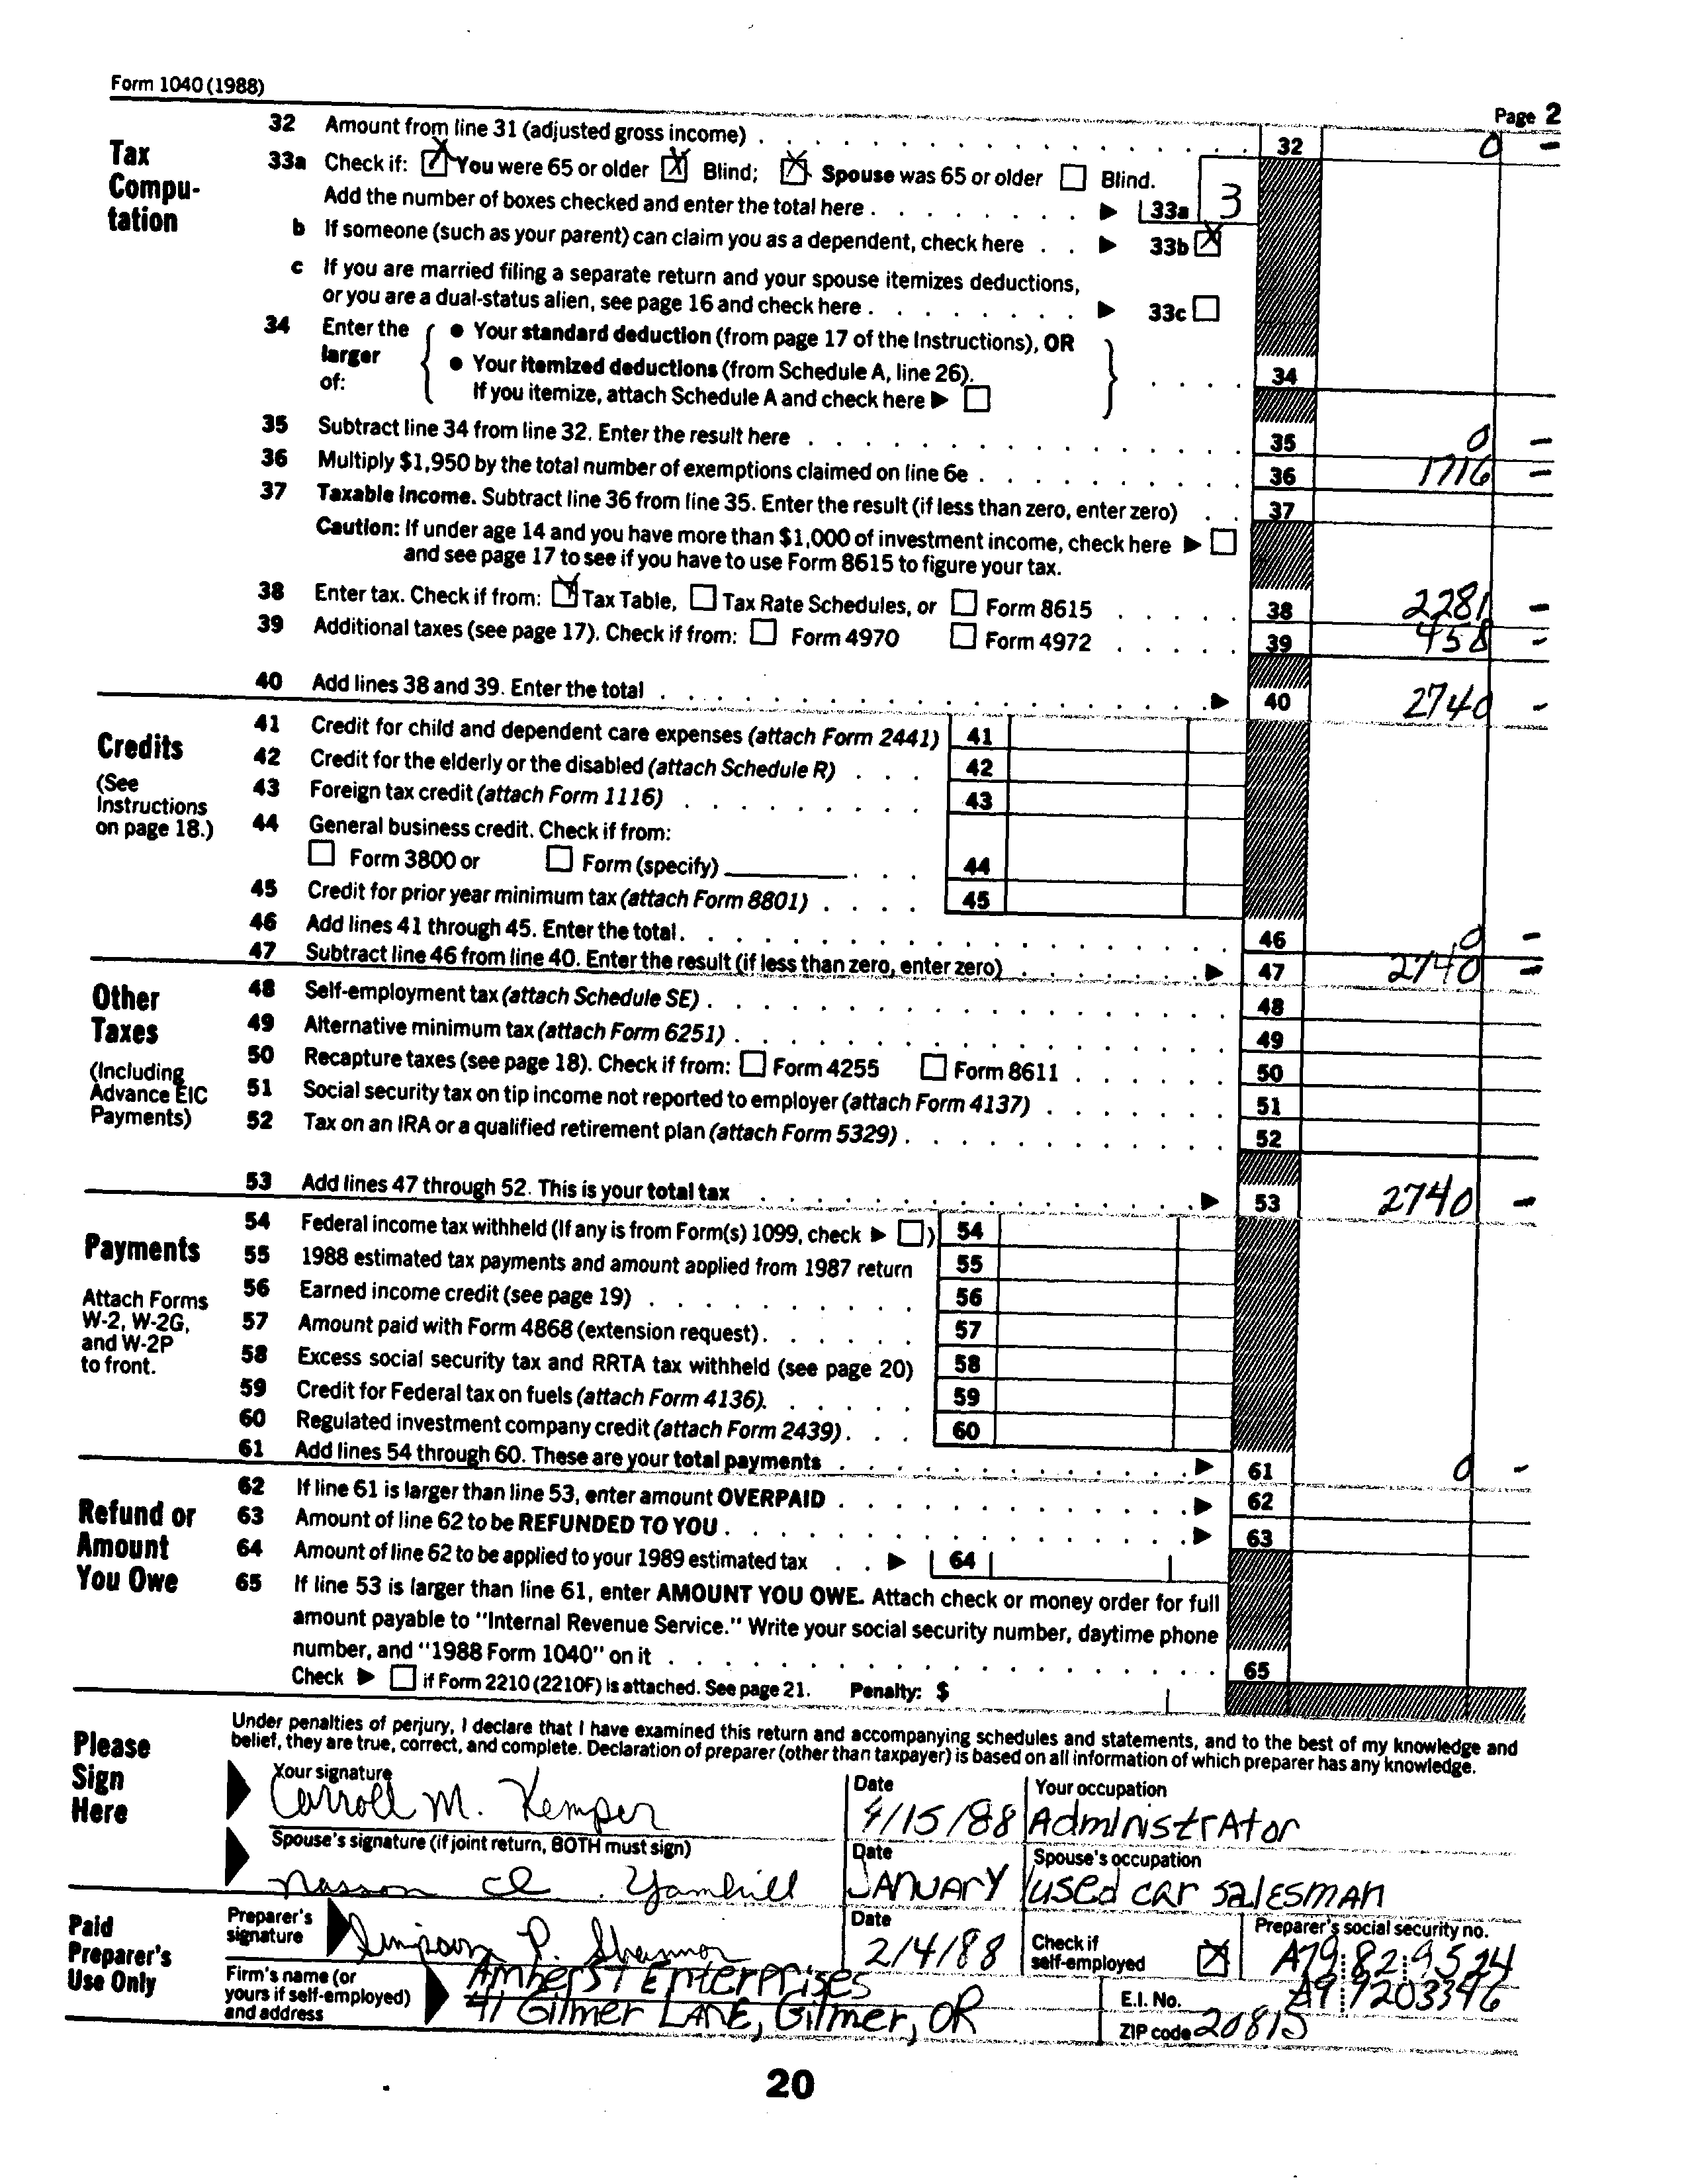 Form 1040 (1988)
Page 2
Tax Computation
32 Amount from line 31 (adjusted gross income) 32 0 –
33a Check if: X You were 65 or older X Blind; X Spouse was 65 or older Blind.
Add the number of boxes checked and enter the total here 33a 3
b If someone (such as your parent) can claim you as a dependent, check here 33b X
c If you are married filing a separate return and your spouse itemizes deductions,
or you are a dual-status alien, see page 16 and check here 33c
34 Enter the larger of:
● Your standard deduction (from page 17 of the Instructions), OR
● Your itemized deductions (from Schedule A, line 26).
If you itemize, attach Schedule A and check here ▶
34
35 Subtract line 34 from line 32. Enter the result here 35 0 –
36 Multiply $1,950 by the total number of exemptions claimed on line 6e 36 1716 –
37 Taxable income. Subtract line 36 from line 35. Enter the result (if less than zero, enter zero) 37
Caution: If under age 14 and you have more than $1,000 of investment income, check here ▶
and see page 17 to see if you have to use Form 8615 to figure your tax.
38 Enter tax. Check if from: X Tax Table, Tax Rate Schedules, or Form 8615 38 2281 –
39 Additional taxes (see page 17). Check if from: Form 4970 Form 4972 39 458 –
40 Add lines 38 and 39. Enter the total ▶ 40 2740 –
Credits
(See Instructions on page 18.)
41 Credit for child and dependent care expenses (attach Form 2441) 41
42 Credit for the elderly or the disabled (attach Schedule R) 42
43 Foreign tax credit (attach Form 1116) 43
44 General business credit. Check if from:
Form 3800 or Form (specify) 44
45 Credit for prior year minimum tax (attach Form 8801) 45
46 Add lines 41 through 45. Enter the total 46 0 –
47 Subtract line 46 from line 40. Enter the result (if less than zero, enter zero) ▶ 47 2740 –
Other Taxes
(Including Advance EIC Payments)
48 Self-employment tax (attach Schedule SE) 48
49 Alternative minimum tax (attach Form 6251) 49
50 Recapture taxes (see page 18). Check if from: Form 4255 Form 8611 50
51 Social security tax on tip income not reported to employer (attach Form 4137) 51
52 Tax on an IRA or a qualified retirement plan (attach Form 5329) 52
53 Add lines 47 through 52. This is your total tax ▶ 53 2740 –
Payments
Attach Forms W-2, W-2G, and W-2P to front.
54 Federal income tax withheld (If any is from Form(s) 1099, check ▶ ) 54
55 1988 estimated tax payments and amount applied from 1987 return 55
56 Earned income credit (see page 19) 56
57 Amount paid with Form 4868 (extension request) 57
58 Excess social security tax and RRTA tax withheld (see page 20) 58
59 Credit for Federal tax on fuels (attach Form 4136) 59
60 Regulated investment company credit (attach Form 2439) 60
61 Add lines 54 through 60. These are your total payments ▶ 61 0 –
Refund or Amount You Owe
62 If line 61 is larger than line 53, enter amount OVERPAID ▶ 62
63 Amount of line 62 to be REFUNDED TO YOU ▶ 63
64 Amount of line 62 to be applied to your 1989 estimated tax ▶ 64
65 If line 53 is larger than line 61, enter AMOUNT YOU OWE. Attach check or money order for full
amount payable to "Internal Revenue Service." Write your social security number, daytime phone
number, and "1988 Form 1040" on it 65
Check ▶ if Form 2210 (2210F) is attached. See page 21. Penalty: $
Please Sign Here
Under penalties of perjury, I declare that I have examined this return and accompanying schedules and statements, and to the best of my knowledge and
belief, they are true, correct, and complete. Declaration of preparer (other than taxpayer) is based on all information of which preparer has any knowledge.
Your signature Date Your occupation
Carroll M. Kemper 4/15/88 Administrator
Spouse's signature (if joint return, BOTH must sign) Date Spouse's occupation
Yamhill January used car salesman
Paid Preparer's Use Only
Preparer's signature Simpson P. Shannon
Date 2/4/88
Check if self-employed X
Preparer's social security no.
A79 82 9524
Firm's name (or yours if self-employed) and address
Amherst Enterprises
41 Gilmer Lane, Gilmer, OR
E.I. No. A9 9203346
ZIP code 20815
20